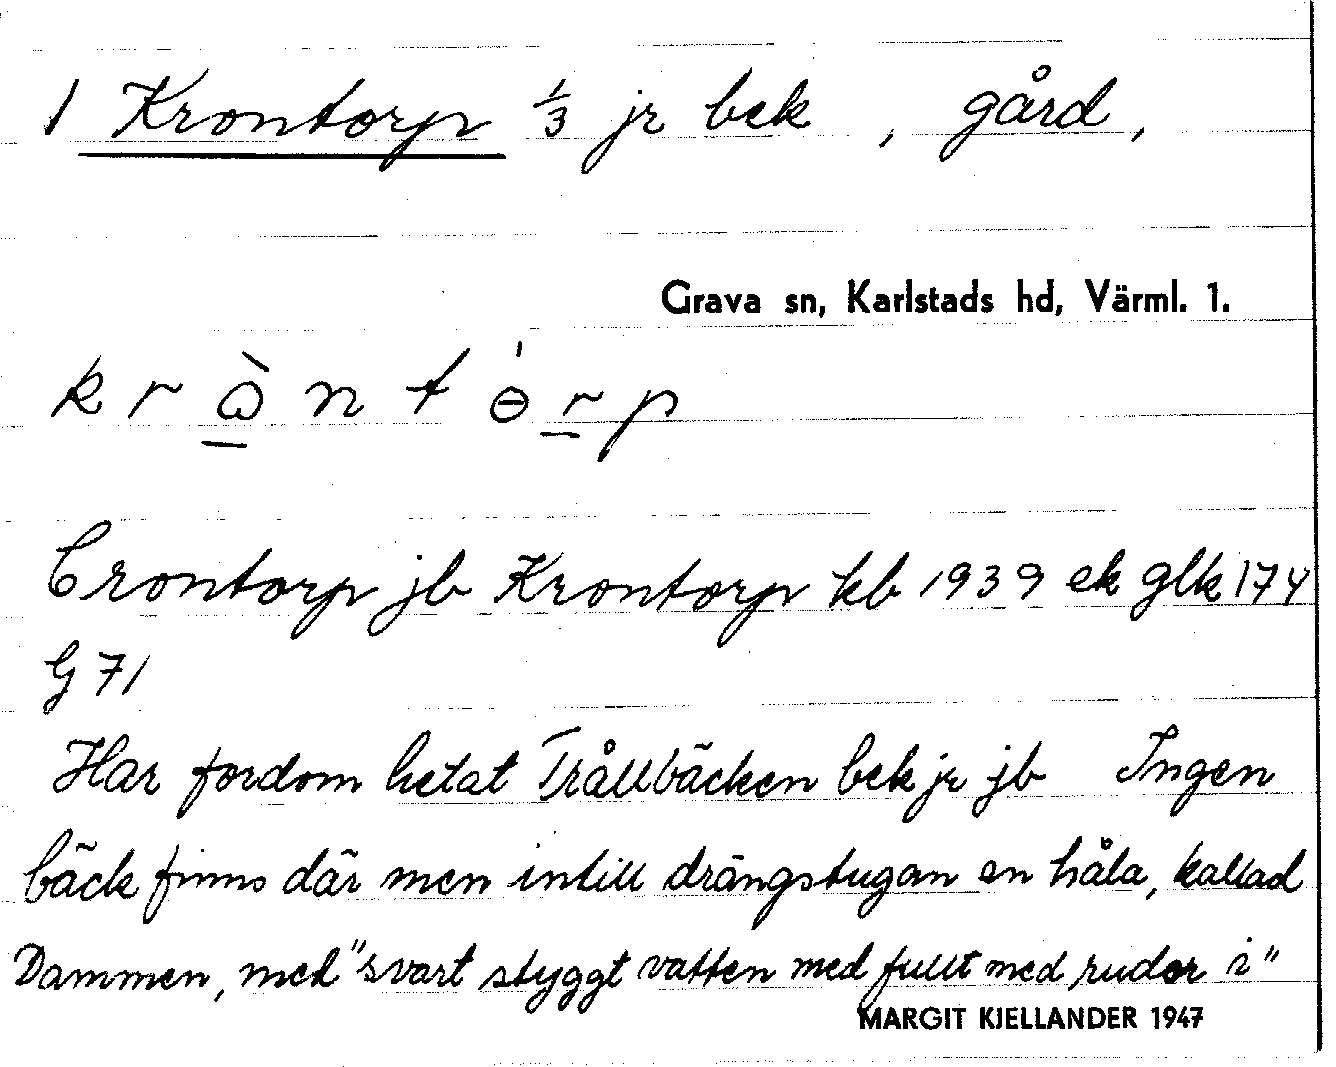 1 Krontorp 1/3 jr bek , gård,
Grava sn, Karlstads hd, Värml. 1.
k r ὼ n t ɵ́ r p
Crontorp jb Krontorp kb 1939 ek glk 174
G 71
Har fordom hetat Trållbäcken bek jr jb Ingen
bäck finns där men intill drängstugan en håla, kallad
Dammen, med "svart styggt vatten med fullt med rudor i"
MARGIT KJELLANDER 1947